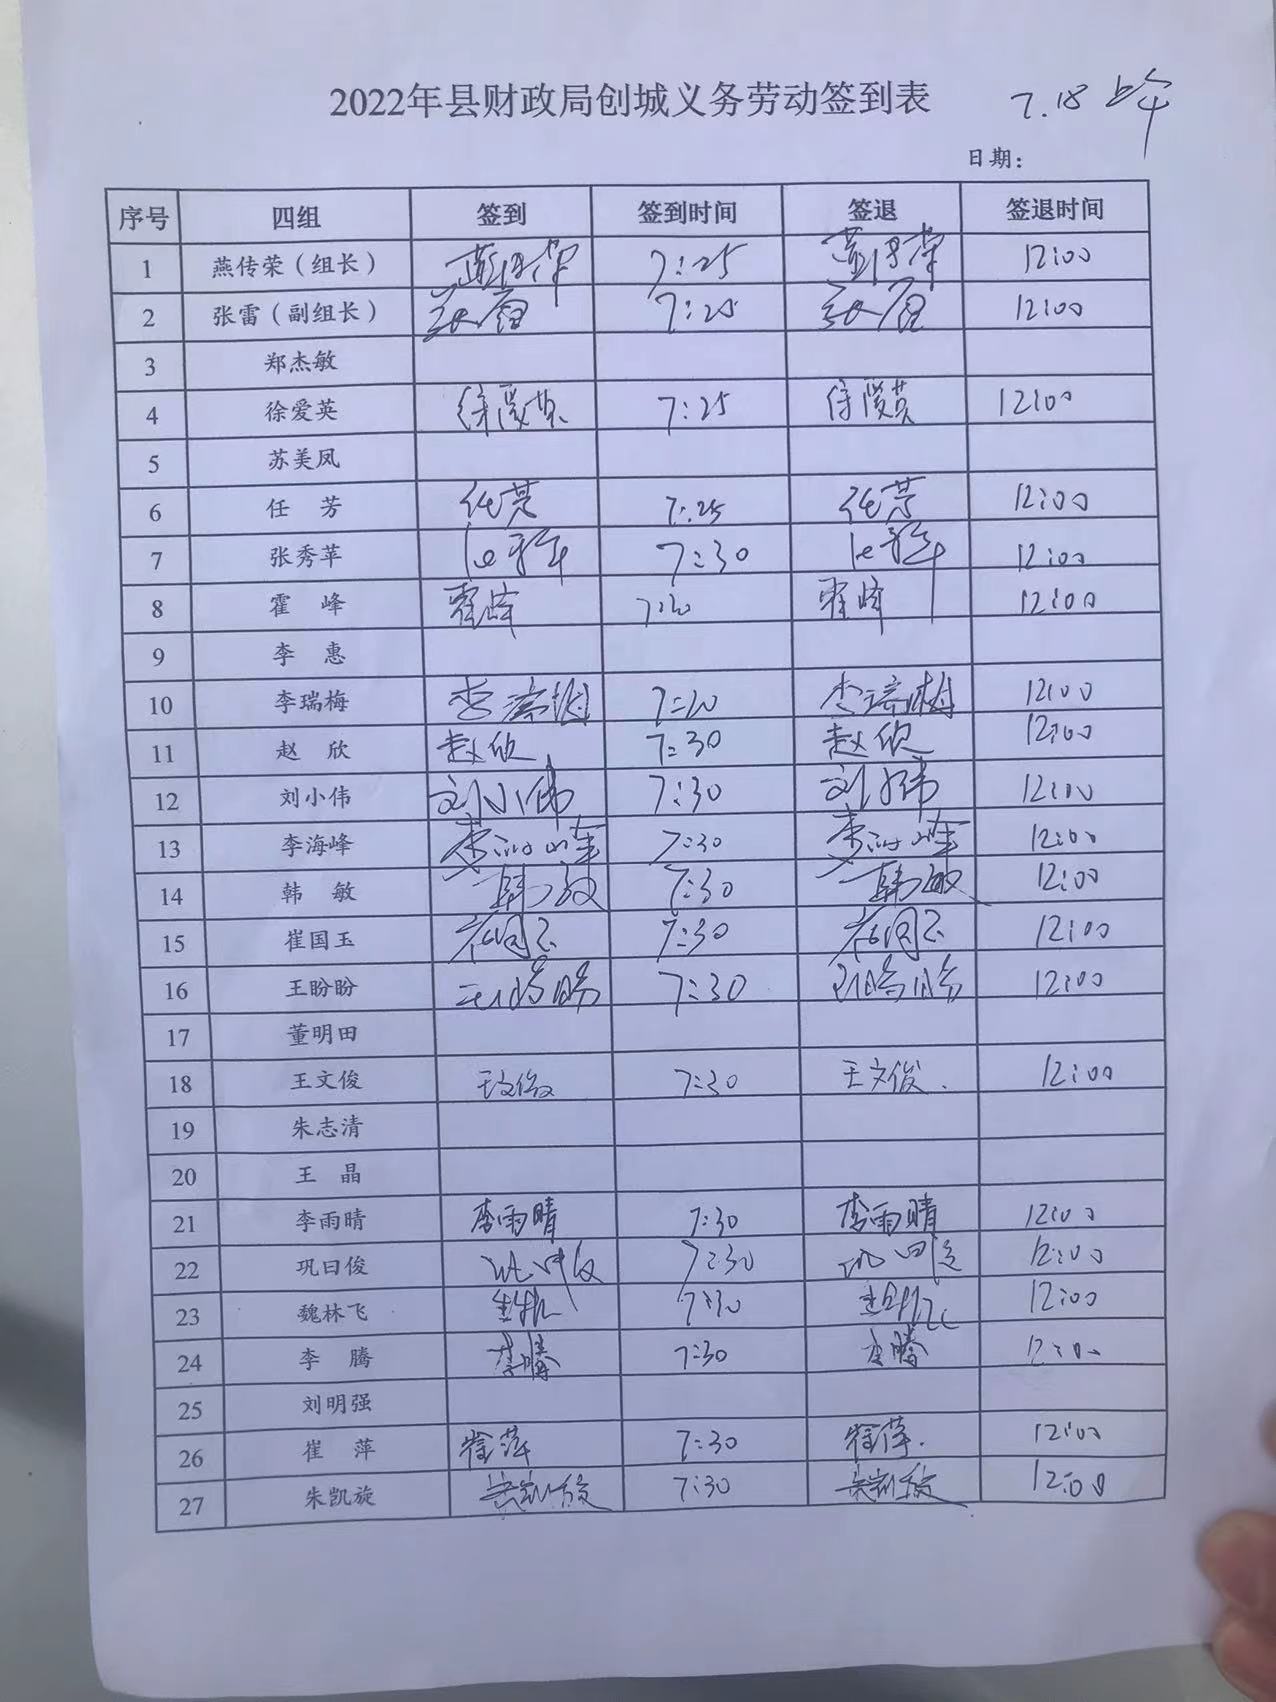 2022年县财政局创城义务劳动签到表 7.18 上午
日期：
序号 四组 签到 签到时间 签退 签退时间
1 燕传荣（组长） 燕传荣 7:25 燕传荣 12:00
2 张雷（副组长） 张雷 7:25 张雷 12:00
3 郑杰敏
4 徐爱英 徐爱英 7:25 徐爱英 12:00
5 苏美凤
6 任 芳 任芳 7:25 任芳 12:00
7 张秀苹 7:30 12:00
8 霍 峰 霍峰 霍峰 12:00
9 李 惠
10 李瑞梅 李瑞梅 李瑞梅 12:00
11 赵 欣 赵欣 7:30 赵欣 12:00
12 刘小伟 刘小伟 7:30 刘小伟 12:00
13 李海峰 李海峰 7:30 李海峰 12:00
14 韩 敏 韩敏 7:30 韩敏 12:00
15 崔国玉 崔国玉 7:30 崔国玉 12:00
16 王盼盼 王盼盼 7:30 王盼盼 12:00
17 董明田
18 王文俊 王文俊 7:30 王文俊. 12:00
19 朱志清
20 王 晶
21 李雨晴 李雨晴 7:30 李雨晴 12:00
22 巩曰俊 7:30 巩曰俊 12:00
23 魏林飞 7:30 12:00
24 李 腾 李腾 7:30 李腾 12:00
25 刘明强
26 崔 萍 崔萍 7:30 崔萍. 12:00
27 朱凯旋 朱凯旋 7:30 朱凯旋 12:00